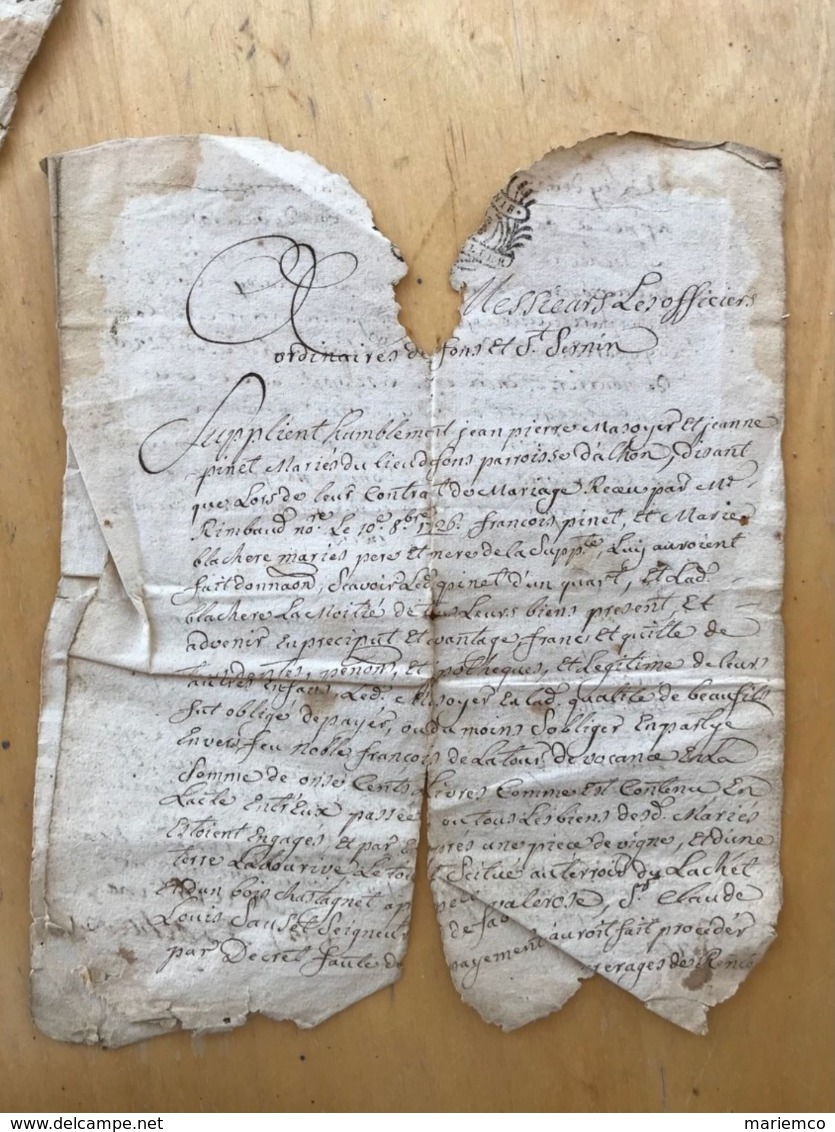 A Messieurs Les officiers
ordinaires de fons et St Sernin
Supplient humblement jean pierre Masoyer et jeanne
pinet Mariés du lieu de fons parroisse d'ailhon, disant
que Lors de leur Contrat de Mariage Receu par Me
Rimbaud nore Le 10e 8bre 1726 francois pinet, et Marie
blachere mariés pere et mere de la Suppte Luy auroient
fait donnaon, Scavoir Led pinet d'un quart, Et Lad
blachere La Moitié de tous Leurs biens present, Et
advenir En preciput Et avantage, franc Et quitte de
autres Enfans, Led. Masoyer En lad. qualité de beaufils
fut obligé de payer, ou du moins S'obliger En partye
Envers feu Noble francois de La tour de vocance En La
Somme de onse Cents Livres Comme Est Contenu En
Lacte Entreux passée ou tous Les biens desd. Mariés
Estoient Engages, Et par une piece de vigne, Et d'une
terre Labourive Scitué au terroir du Lachet
Et d'un bois chastagnet valerose, Sr Claude
Louis Sauset Seigneur de
payement auroit fait procéder
par Decret faute de